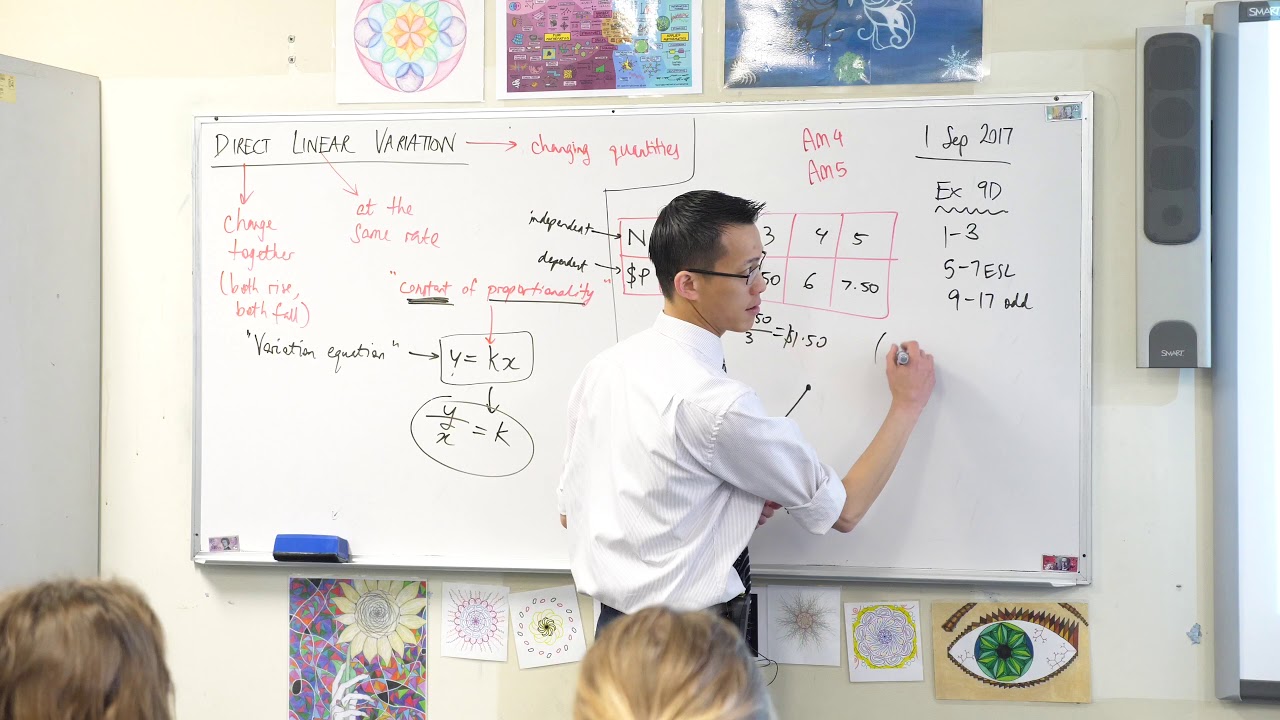 DIRECT LINEAR VARIATION
changing quantities
Am4
Am5
1 Sep 2017
change
together
(both rise,
both fall)
at the
same rate
independent
N
3
4
5
dependent
$P
50
6
7.50
Ex 9D
1-3
5-7 ESL
9-17 odd
"constant of proportionality"
"Variation equation"
y = kx
y/x = k
50/3 = $1.50
(
SMART
SMART